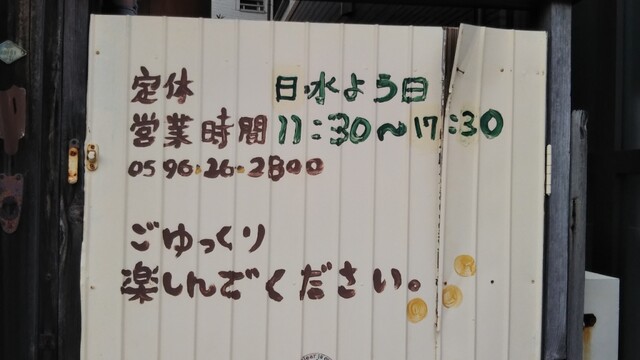 定休 日・水よう日
営業時間 11:30〜17:30
0596-26-2800
ごゆっくり
楽しんでください。